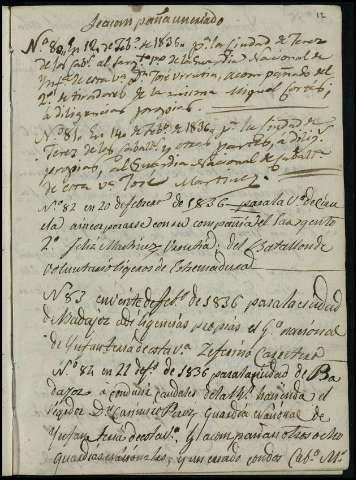 12
Se acompaña un criado
Nº 80, en 12 de Feb.º de 1836 p.ª la ciudad de Jerez
de los Cab.s al sarg.to p.º de la guardia Nacional de
Ynf.ª de esta v.ª D.n José Urrutia, acompañado del
2º de tiradores de la misma Miguel Cortes,
á diligencias propias.
Nº 81. En 14 de Feb.º de 1836, p.ª la ciudad de
Jerez de los Caball.s y otros puntos, á dilig.s
propias, al Guardia Nacional de Caball.ª
de esta v.ª José Martinez.
Nº 82 en 20 de febrero de 1836 para la V.ª de
a incorporarse con su compañia el Sargento
2º Feliz Martinez Urrutia del Batallon de
voluntarios ligeros de Estremadura
Nº 83 en veinte de feb.º de 1836 para la ciudad
de Badajoz a diligencias propias el G.ª nacional
de Ynfanteria de esta v.ª Zeferino Carretero
Nº 84 en 22 de f.º de 1836 para la ciudad de Ba
dajoz a conducir caudales de la hacienda el
D.n Manuel Perez, Guardia nacional de
Ynfanteria de esta v.ª y le acompañan otros ocho
guardias nacionales, y un criado con dos Cab.s M.s